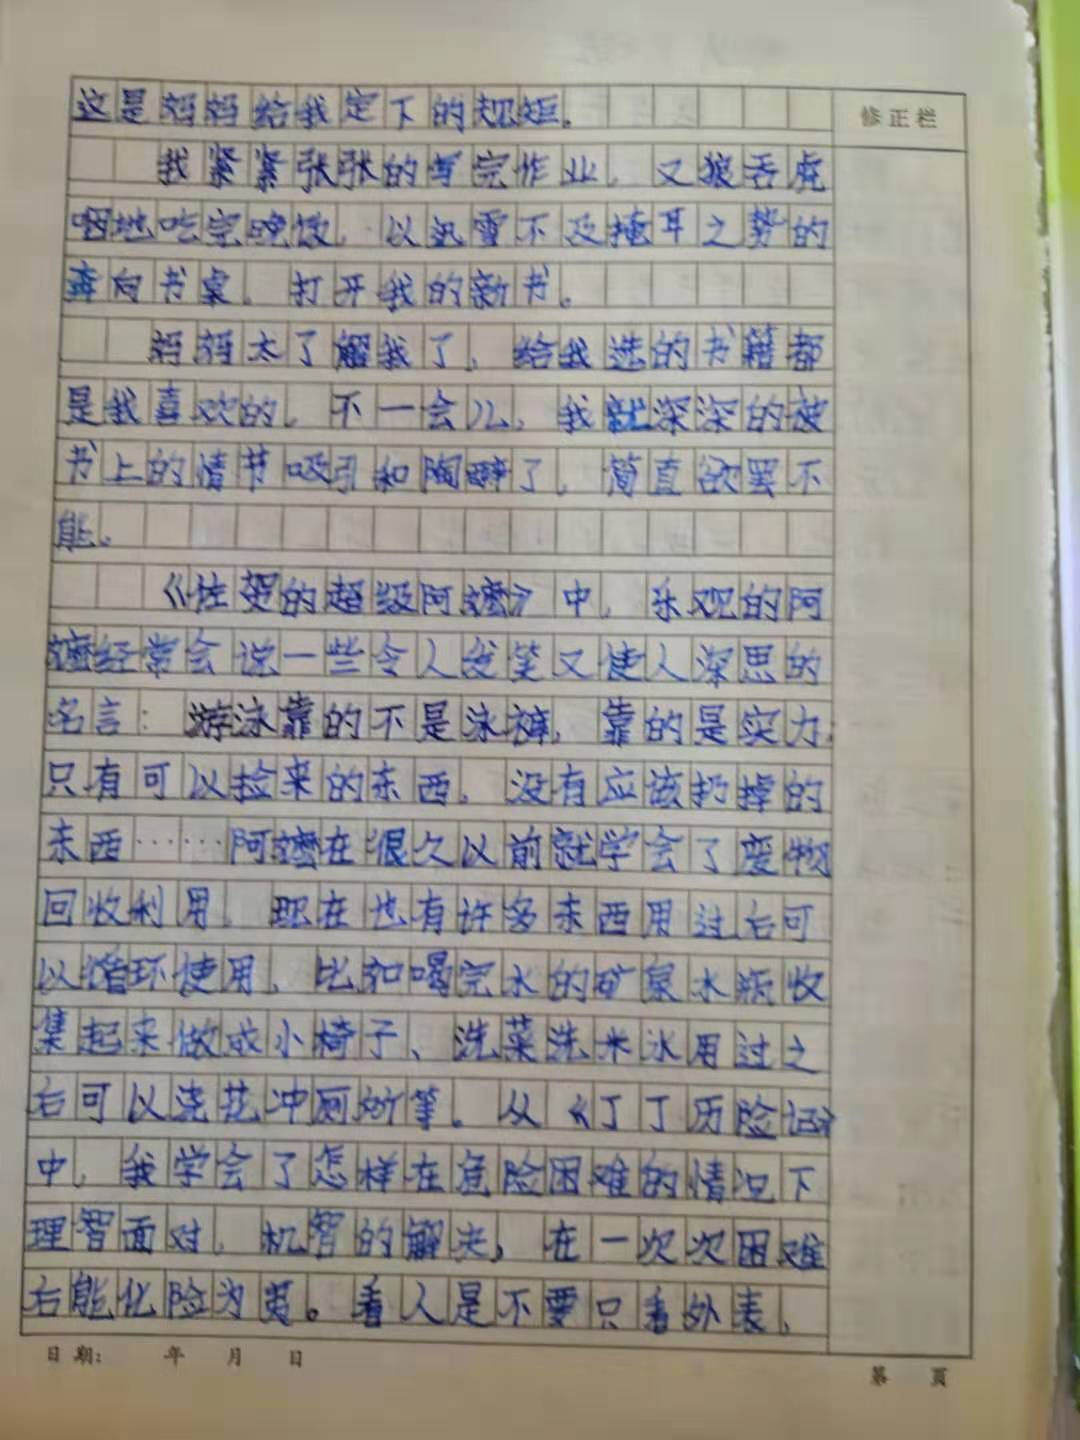 这是妈妈给我定下的规矩。
修正栏
我紧紧张张的写完作业，又狼吞虎
咽地吃完晚饭，以迅雷不及掩耳之势的
奔向书桌，打开我的新书。
妈妈太了解我了，给我选的书籍都
是我喜欢的，不一会儿，我就深深的被
书上的情节吸引和陶醉了，简直欲罢不
能。
《佐贺的超级阿嬷》中，乐观的阿
嬷经常会说一些令人发笑又使人深思的
名言：游泳靠的不是泳裤，靠的是实力；
只有可以捡来的东西，没有应该扔掉的
东西……阿嬷在很久以前就学会了废物
回收利用，现在也有许多东西用过后可
以循环使用，比如喝完水的矿泉水瓶收
集起来做成小椅子、洗菜洗米水用过之
后可以浇花冲厕所等。从《丁丁历险记》
中，我学会了怎样在危险困难的情况下
理智面对，机智的解决，在一次次困难
后能化险为夷。看人是不要只看外表，
日期： 年 月 日
第 页